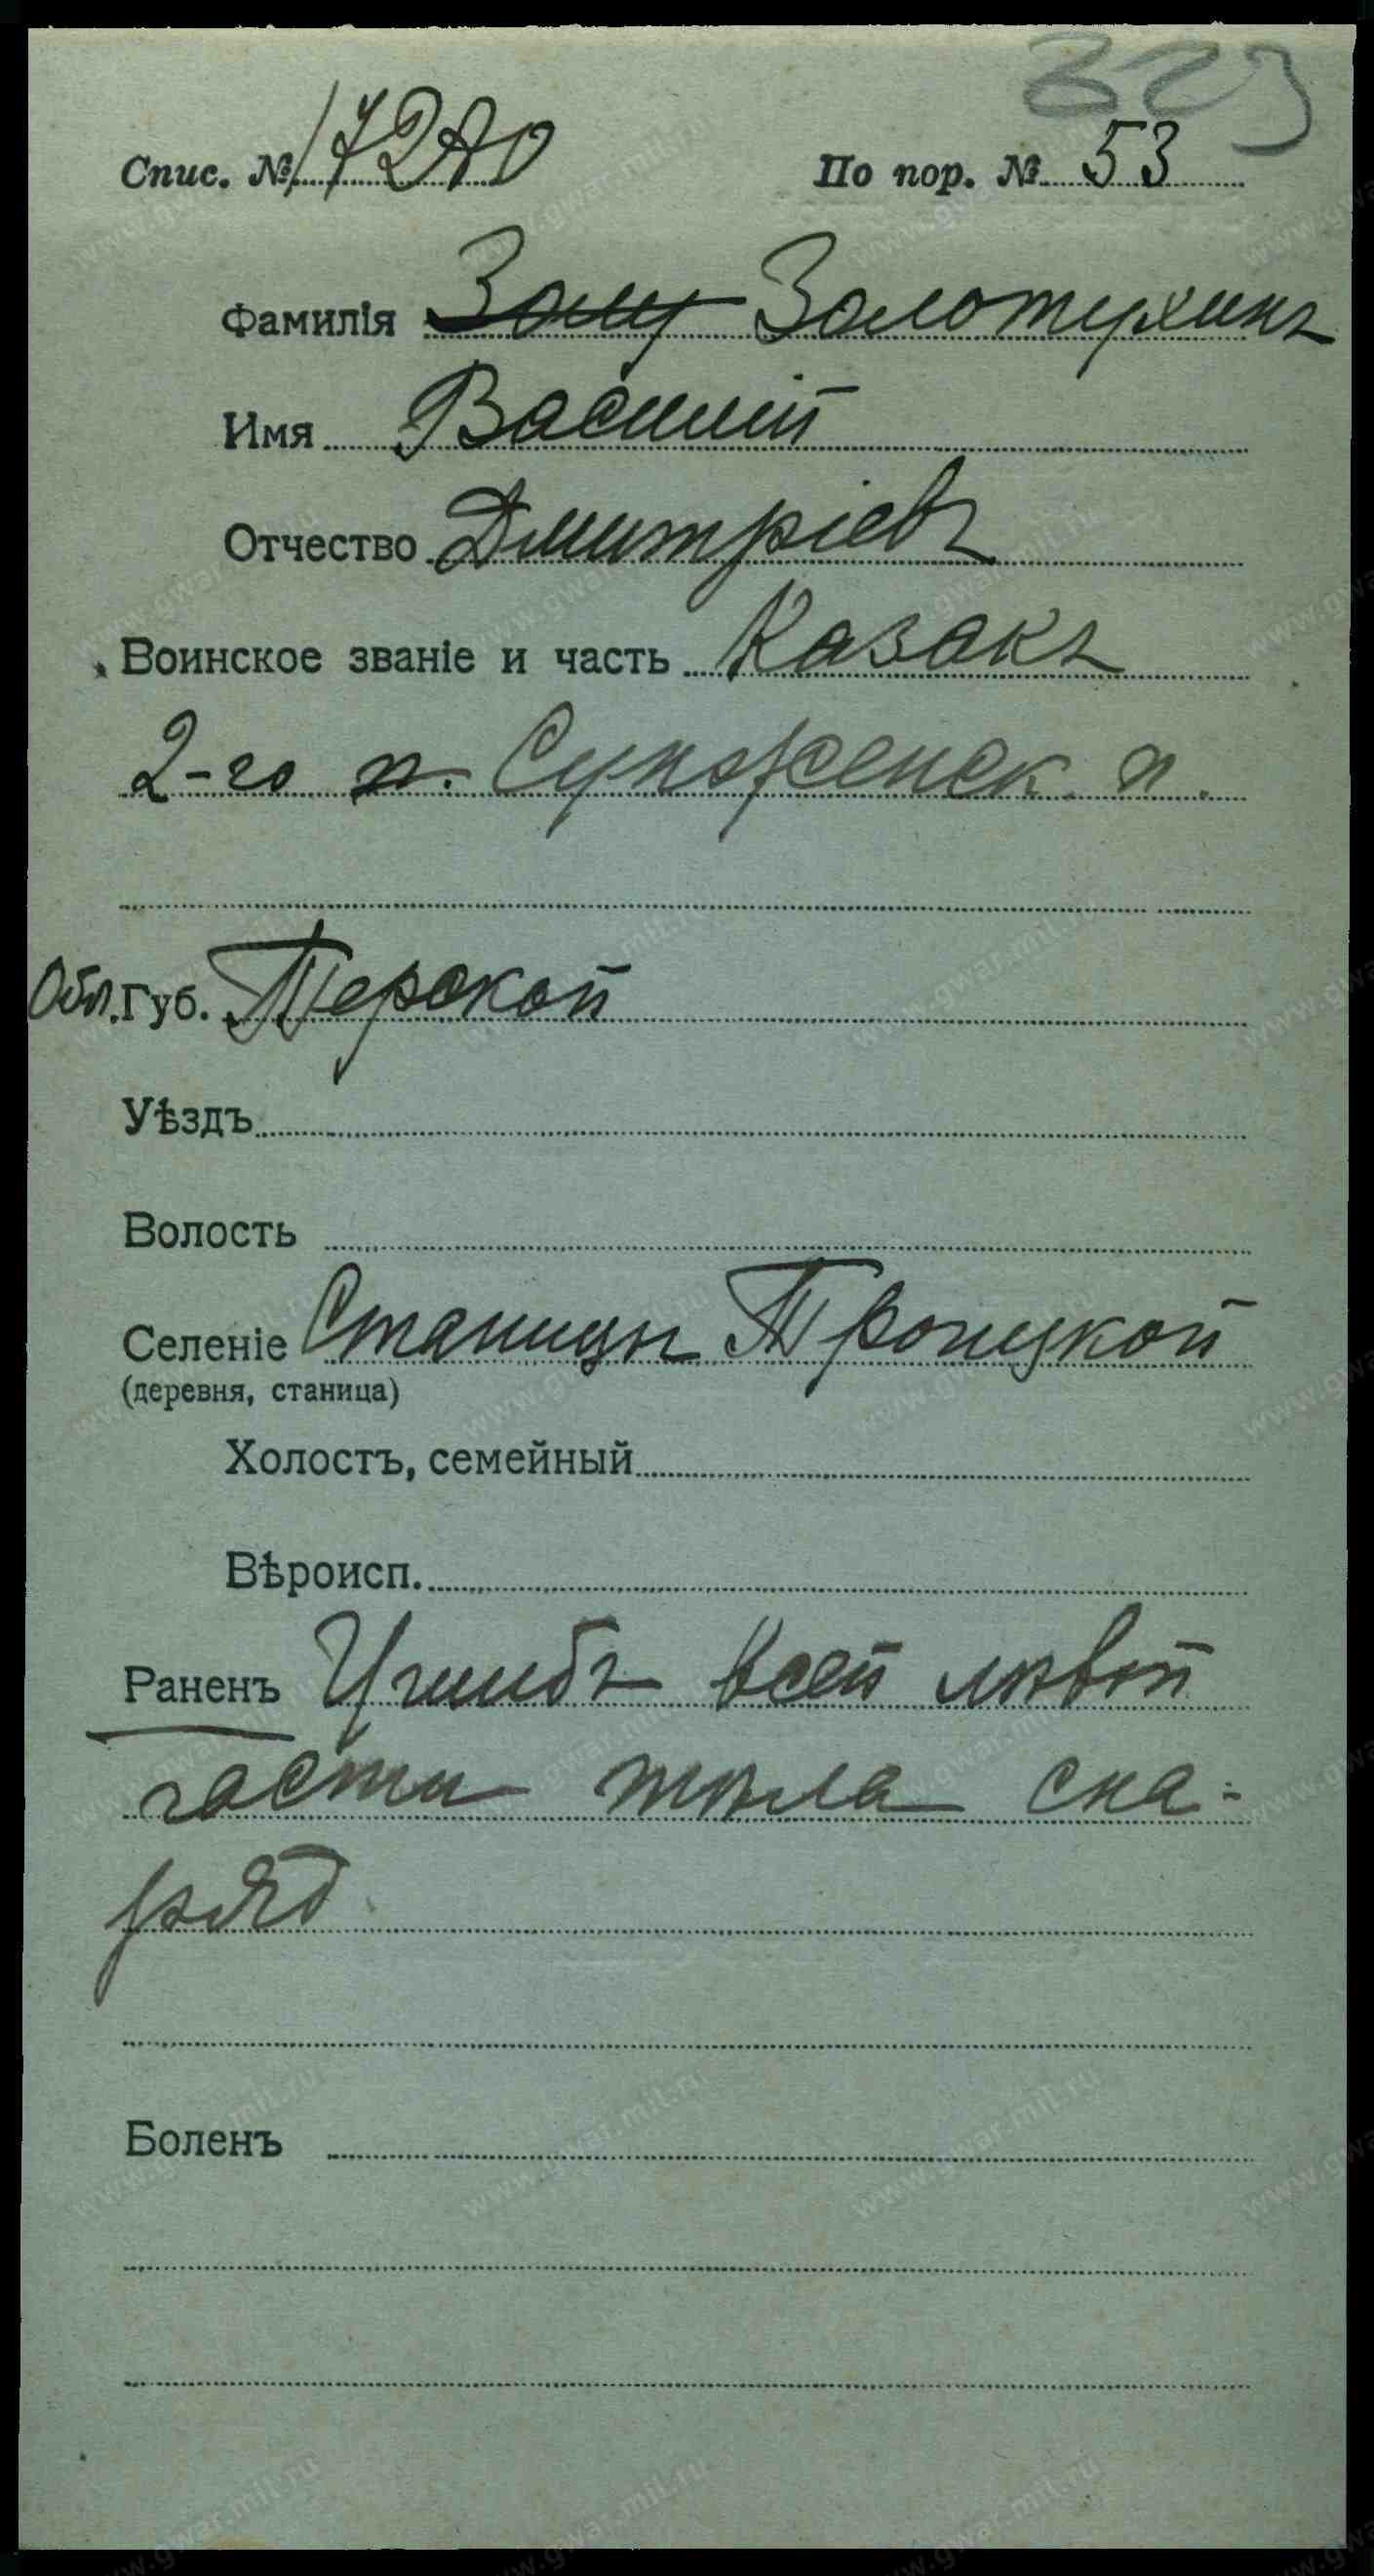 323
Спис. № 17280 По пор. № 53
Фамилія Золотухинъ
Имя Василій
Отчество Дмитріевъ
Воинское званіе и часть Казакъ
2-го п. Сунженск. п.
Обл. Губ. Терской
Уѣздъ
Волость
Селеніе Станицы Троицкой
(деревня, станица)
Холостъ, семейный
Вѣроисп.
Раненъ Ушибъ всей лѣвой
части тѣла сна-
ряд.
Боленъ